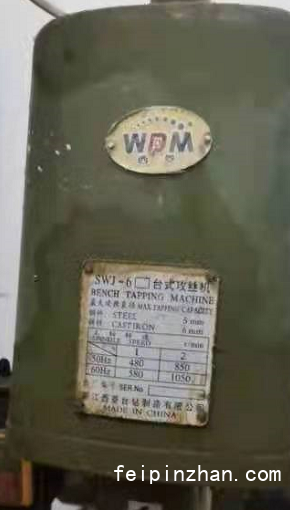 WDM
SWJ-6 台式攻丝机
BENCH TAPPING MACHINE
最大攻丝直径 MAX TAPPING CAPACITY
钢件 STEEL 5 mm
铸件 CAST IRON 6 mm
SPINDLE SPEED r/min
1 2
50Hz 480 850
60Hz 580 1050
SER No.
江西 台钻制造有限公司
MADE IN CHINA
feipinzhan.com